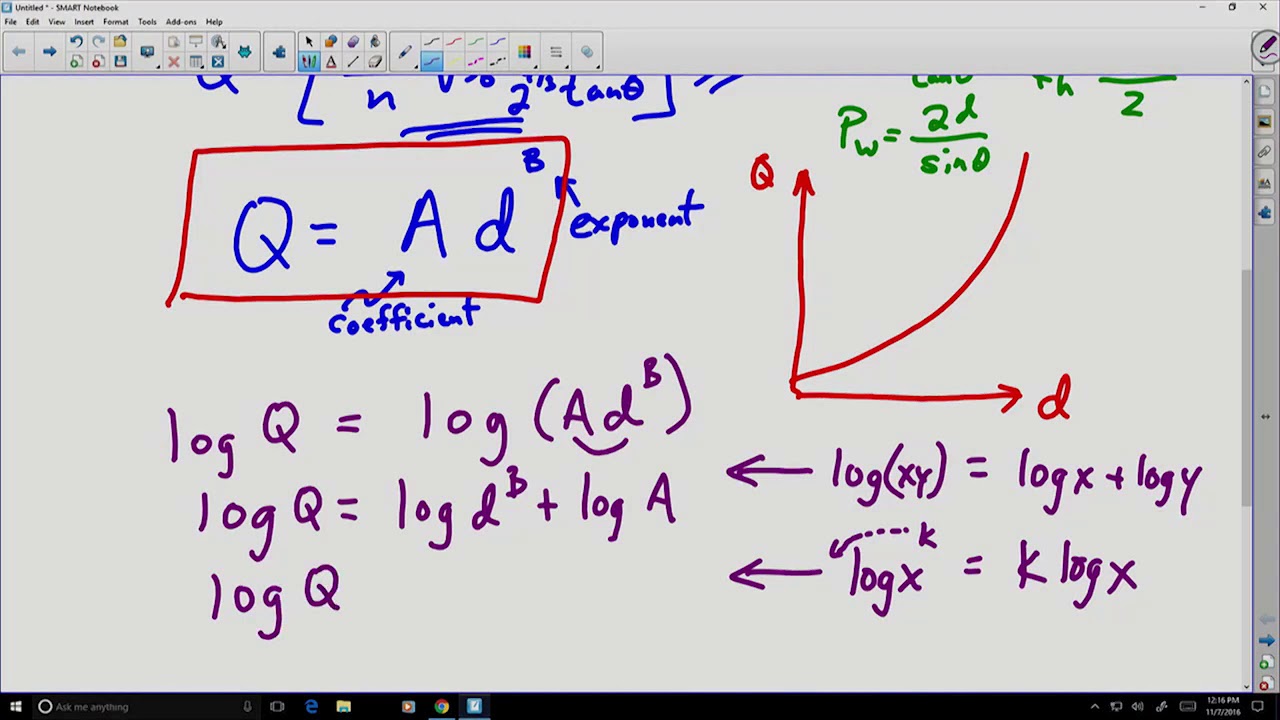 Untitled * - SMART Notebook
File Edit View Insert Format Tools Add-ons Help
n 2^1/3 tanθ
2
P_w = 2d / sinθ
Q = A d^B
exponent
coefficient
Q
d
log Q = log (A d^B)
log Q = log d^B + log A
log Q
log(xy) = log x + log y
log x^k = k log x
Ask me anything
12:16 PM
11/7/2016